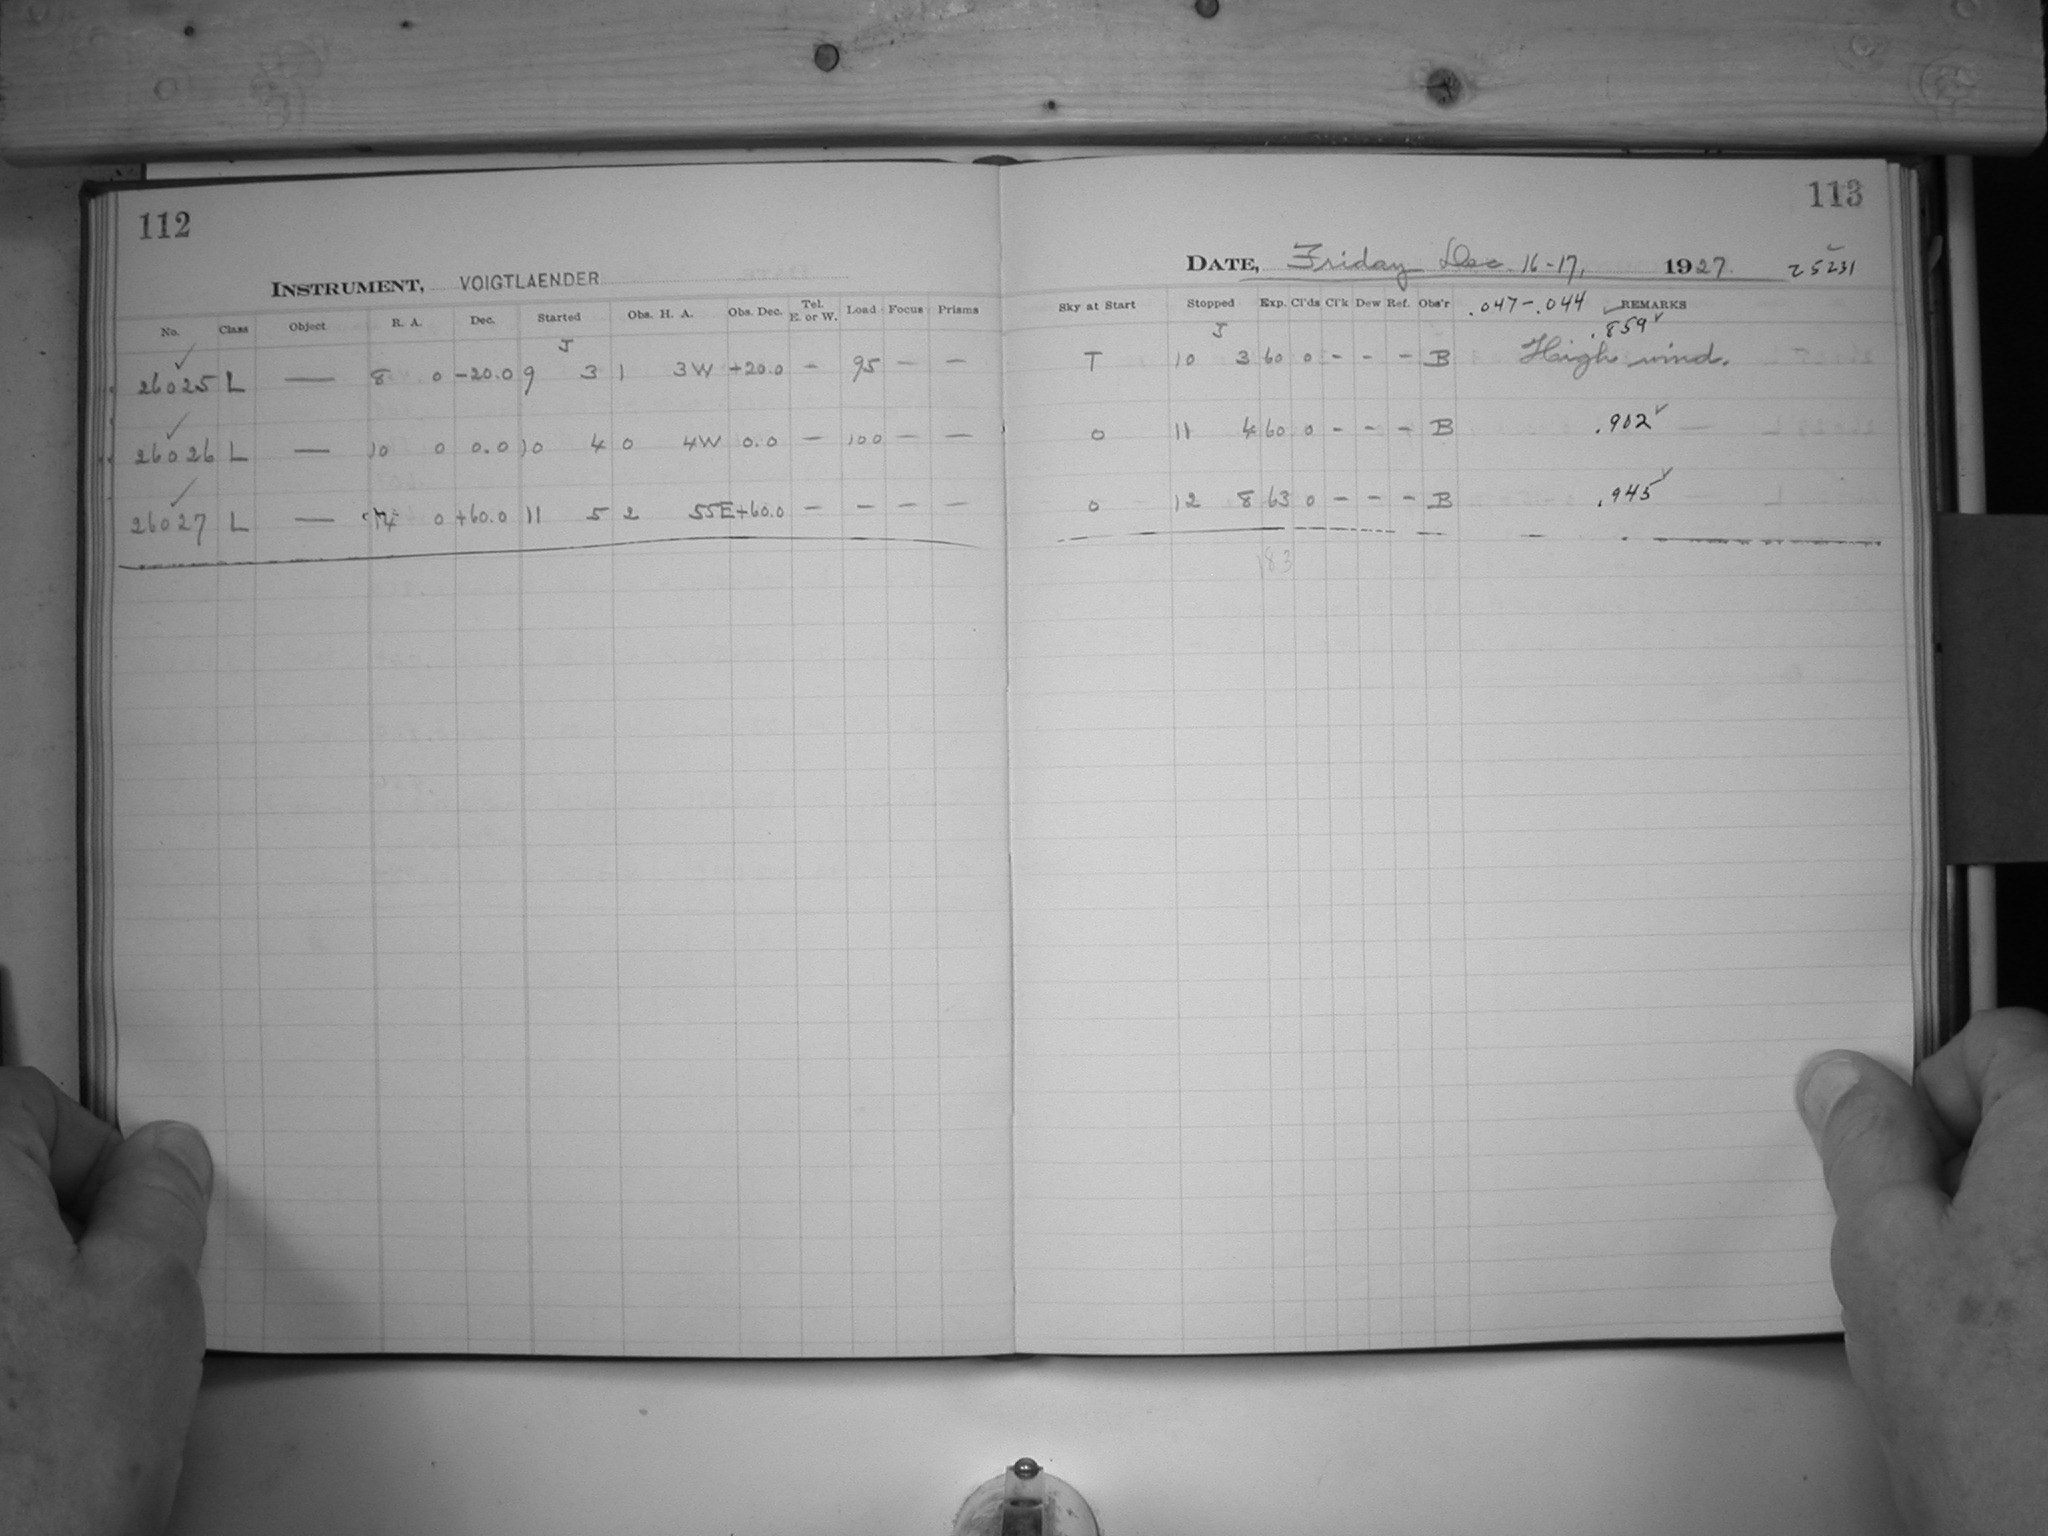 112
INSTRUMENT, VOIGTLAENDER
No. Class Object R. A. Dec. Started Obs. H. A. Obs. Dec. Tel. E. or W. Load Focus Prisms
J
26025 L — 8 0 -20.0 9 3 1 3W +20.0 — 95 — —
26026 L — 10 0 0.0 10 4 0 4W 0.0 — 100 — —
26027 L — 14 0 +60.0 11 5 2 55E +60.0 — — — —
113
DATE, Friday Dec. 16-17, 1927. 25231
Sky at Start Stopped Exp. Cl'ds Cl'k Dew Ref. Obs'r .047-.044 REMARKS
J .859
T 10 3 60 0 - - - B High wind.
0 11 4 60 0 - - - B .902
0 12 8 63 0 - - - B .945
183